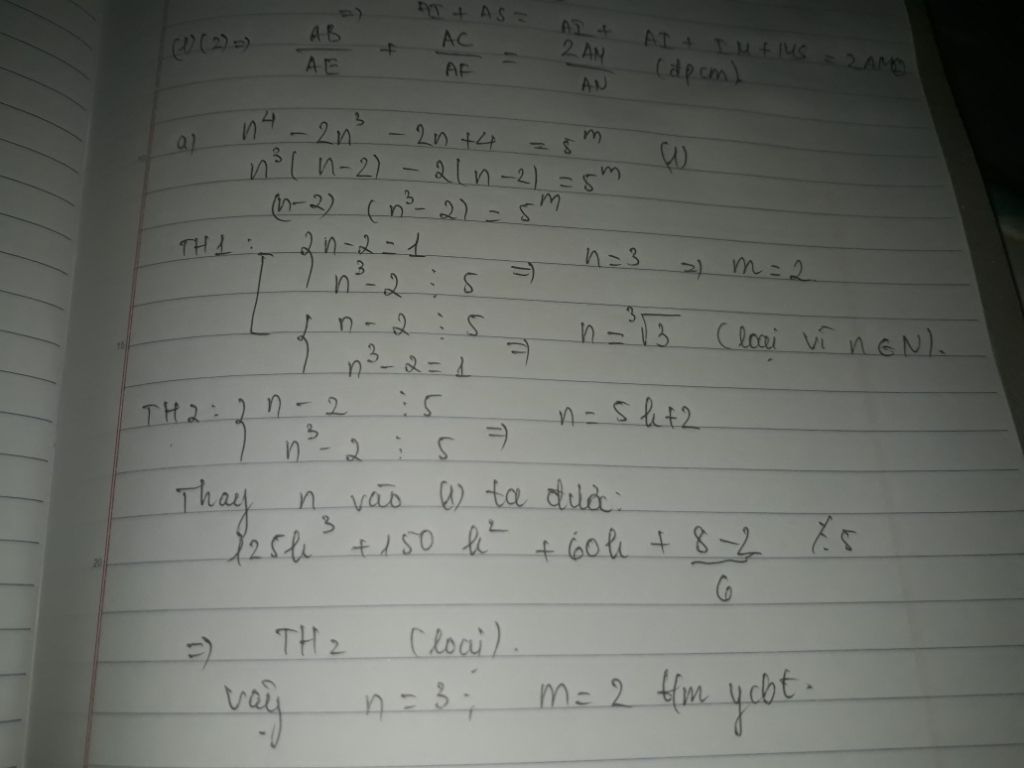 => AI + AS = AI + AI + IM + MS = 2AM
(1)(2) => AB/AE + AC/AF = 2AM/AN (dpcm)
a) n⁴ - 2n³ - 2n + 4 = 5ᵐ (1)
n³(n-2) - 2(n-2) = 5ᵐ
(n-2) (n³-2) = 5ᵐ
TH1: { n-2 = 1
n³-2 ⋮ 5 => n=3 => m=2
{ n-2 ⋮ 5
n³-2 = 1 => n = ³√3 (loại vì n∈N).
TH2: { n-2 ⋮ 5
n³-2 ⋮ 5 => n = 5k+2
Thay n vào (1) ta được:
125k³ + 150k² + 60k + 8-2 ⋮̸ 5
6
=> TH2 (loại).
Vậy n=3; m=2 t/m ycbt.